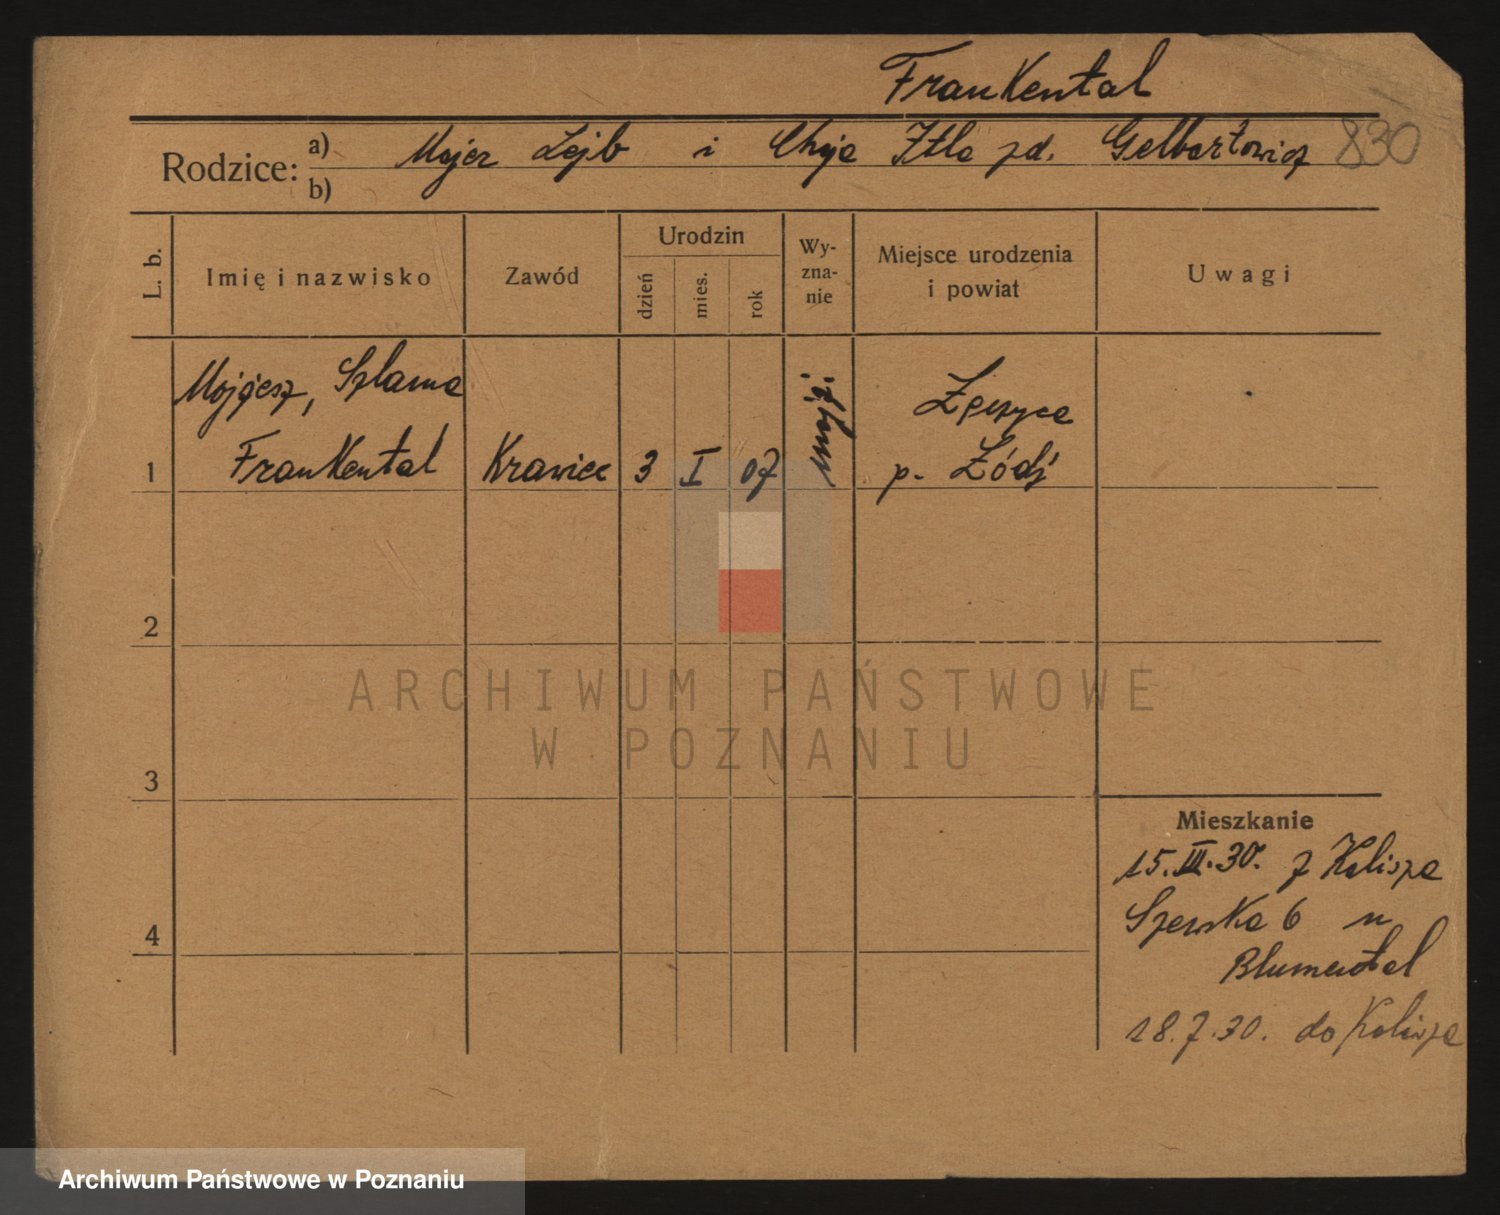 Frankental
Rodzice: a) Majer Lejb i Chaja Itla zd. Gelbartowicz 830
b)
L. b.
Imię i nazwisko
Zawód
Urodzin
dzień
mies.
rok
Wy-
zna-
nie
Miejsce urodzenia
i powiat
Uwagi
Mojżesz, Szlama
1 Frankental Krawiec 3 I 07 mojż. Zgierz
p. Łódź
2
3
4
Mieszkanie
15.III.30. z Kalisza
Szewska 6 u
Blumental
18.7.30. do Kalisza
ARCHIWUM PAŃSTWOWE
W POZNANIU
Archiwum Państwowe w Poznaniu